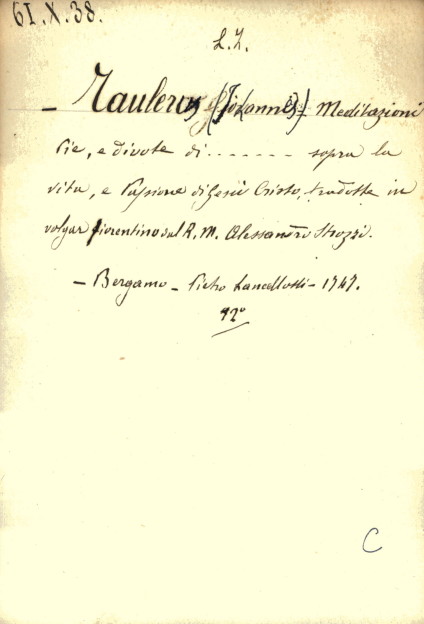 61.X.38.
L.I.
- Taulerus (Johannes) - Meditazioni
Pie, e divote di ....... sopra la
vita, e Passione di Gesù Cristo, tradotte in
volgar fiorentino dal R. M. Alessandro Strozzi.
- Bergamo - Pietro Lancellotti - 1747.
12°
C